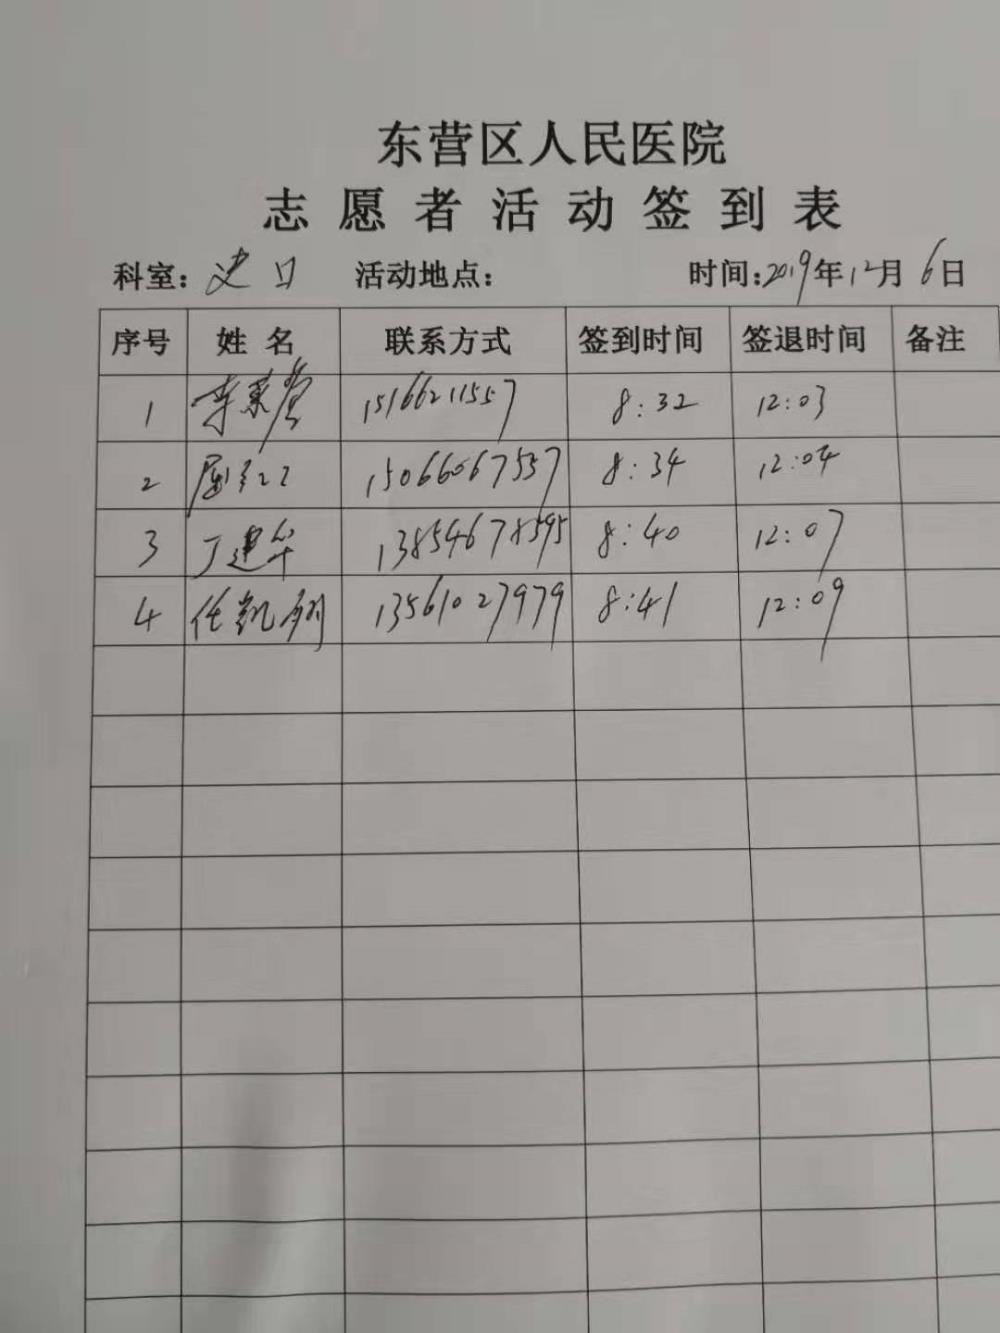 东营区人民医院
志愿者活动签到表
科室：史口 活动地点： 时间：2019年12月6日
序号 姓名 联系方式 签到时间 签退时间 备注
1 李莱营 15166211557 8:32 12:03
2 屈红卫 15066067557 8:34 12:04
3 丁建华 13854678595 8:40 12:07
4 任凯翔 13561027979 8:41 12:09